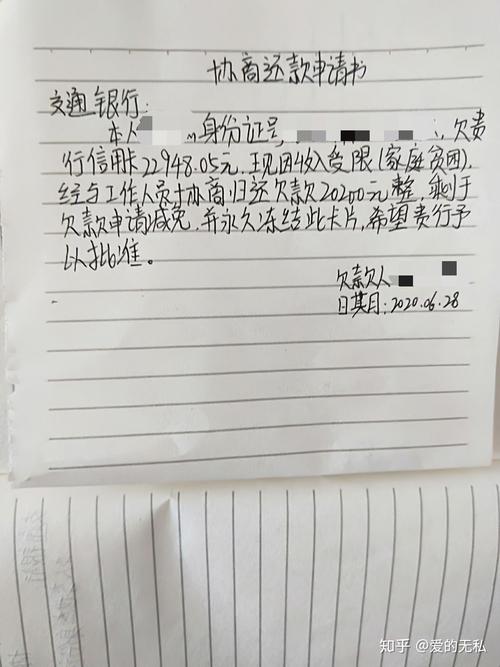 协商还款申请书
交通银行:
本人 身份证号, 欠贵
行信用卡22948.05元,现因收入受限(家庭贫困),
经与工作人员协商归还欠款20200元整,剩于
欠款申请减免,并永久冻结此卡片,希望贵行予
以批准。
欠款人
日期:2020.06.28
知乎 @爱的无私